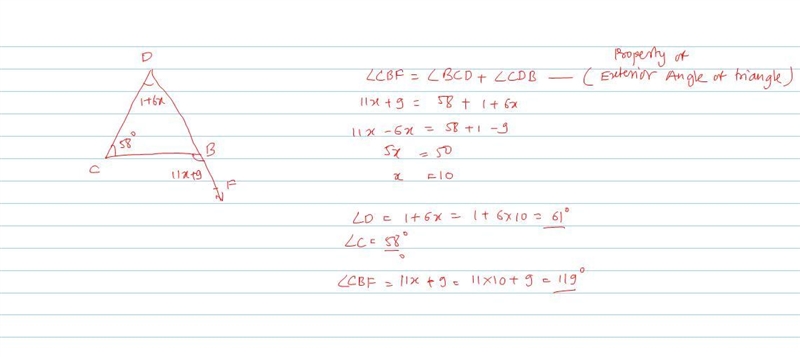 D
1+6x
58°
C
B
11x+9
F
Property of
∠CBF = ∠BCD + ∠CDB — (Exterior Angle of triangle)
11x+9 = 58 + 1 + 6x
11x - 6x = 58 + 1 - 9
5x = 50
x = 10
∠D = 1+6x = 1 + 6×10 = 61°
∠C = 58°
∠CBF = 11x + 9 = 11×10 + 9 = 119°